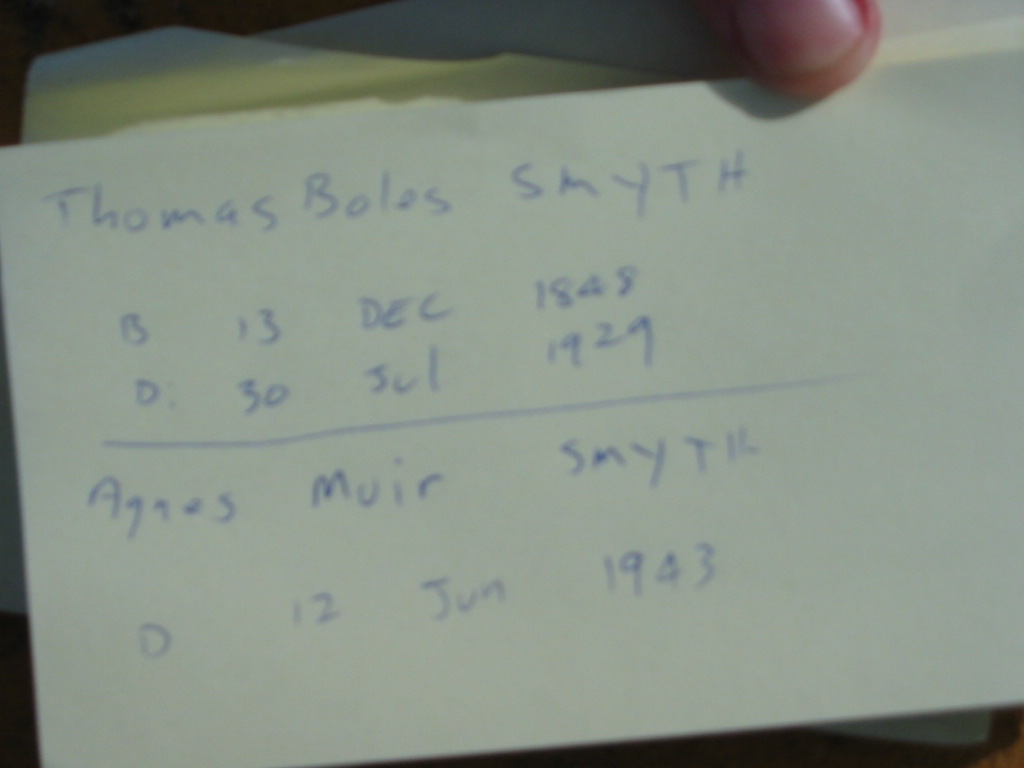 Thomas Boles SMYTH
B 13 DEC 1848
D. 30 Jul 1929
Agnes Muir SMYTH
D 12 Jun 1943